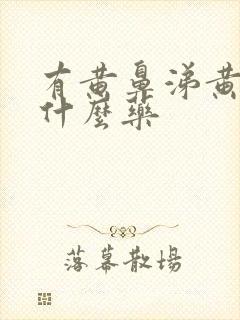 有黄鼻涕黄
什麼藥
落幕散場